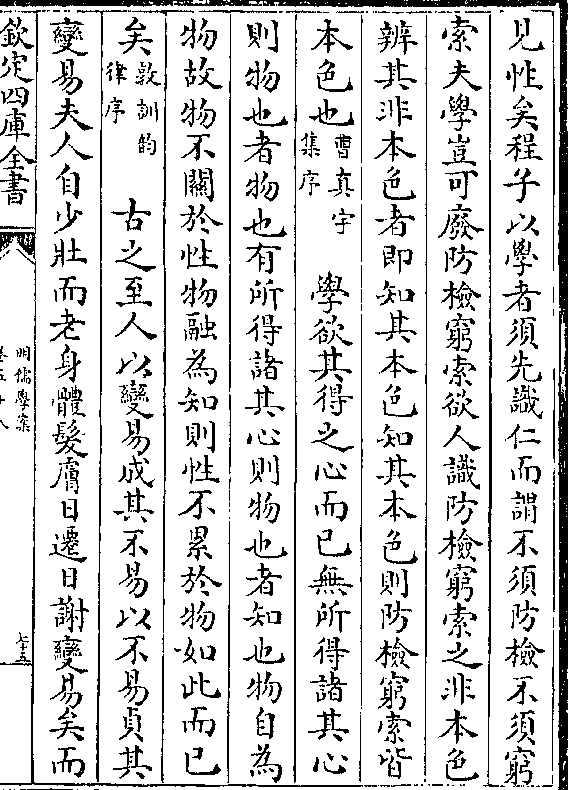 見性矣程子以學者須先識仁而謂不須防檢不須窮
索夫學豈可廢防檢窮索欲人識防檢窮索之非本色
辨其非本色者即知其本色知其本色則防檢窮索皆
本色也曹真宇集序 學欲其得之心而已無所得諸其心
則物也者物也有所得諸其心則物也者知也物自為
物故物不關於性物融為知則性不累於物如此而已
矣敦訓韵律序 古之至人以變易成其不易以不易貞其
變易夫人自少壯而老身體髮膚日遷日謝變易矣而
欽定四庫全書
明儒學案
七十五